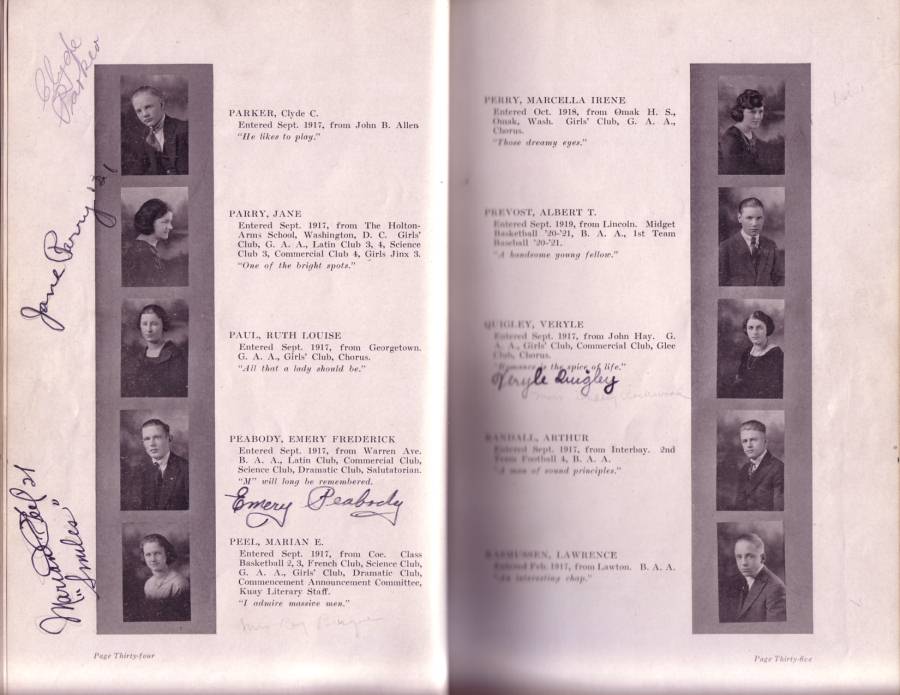 Clyde
Parker
PARKER, Clyde C.
Entered Sept. 1917, from John B. Allen
"He likes to play."
Jane Parry '21
PARRY, JANE
Entered Sept. 1917, from The Holton-
Arms School, Washington, D. C. Girls'
Club, G. A. A., Latin Club 3, 4, Science
Club 3, Commercial Club 4, Girls Jinx 3.
"One of the bright spots."
PAUL, RUTH LOUISE
Entered Sept. 1917, from Georgetown.
G. A. A., Girls' Club, Chorus.
"All that a lady should be."
PEABODY, EMERY FREDERICK
Entered Sept. 1917, from Warren Ave.
B. A. A., Latin Club, Commercial Club,
Science Club, Dramatic Club, Salutatorian.
"M" will long be remembered.
Emery Peabody
Marian Peel 21
"Smiles"
PEEL, MARIAN E.
Entered Sept. 1917, from Coe. Class
Basketball 2, 3, French Club, Science Club,
G. A. A., Girls' Club, Dramatic Club,
Commencement Announcement Committee,
Kuay Literary Staff.
"I admire massive men."
Page Thirty-four
PERRY, MARCELLA IRENE
Entered Oct. 1918, from Omak H. S.,
Omak, Wash. Girls' Club, G. A. A.,
Chorus.
"Those dreamy eyes."
PREVOST, ALBERT T.
Entered Sept. 1919, from Lincoln. Midget
Basketball '20-'21, B. A. A., 1st Team
Baseball '20-'21.
"A handsome young fellow."
QUIGLEY, VERYLE
Entered Sept. 1917, from John Hay. G.
A. A., Girls' Club, Commercial Club, Glee
Club, Chorus.
"Romance is the spice of life."
Veryle Quigley
RANDALL, ARTHUR
Entered Sept. 1917, from Interbay. 2nd
Team Football 4, B. A. A.
"A man of sound principles."
RASMUSSEN, LAWRENCE
Entered Feb. 1917, from Lawton. B. A. A.
"An interesting chap."
Page Thirty-five